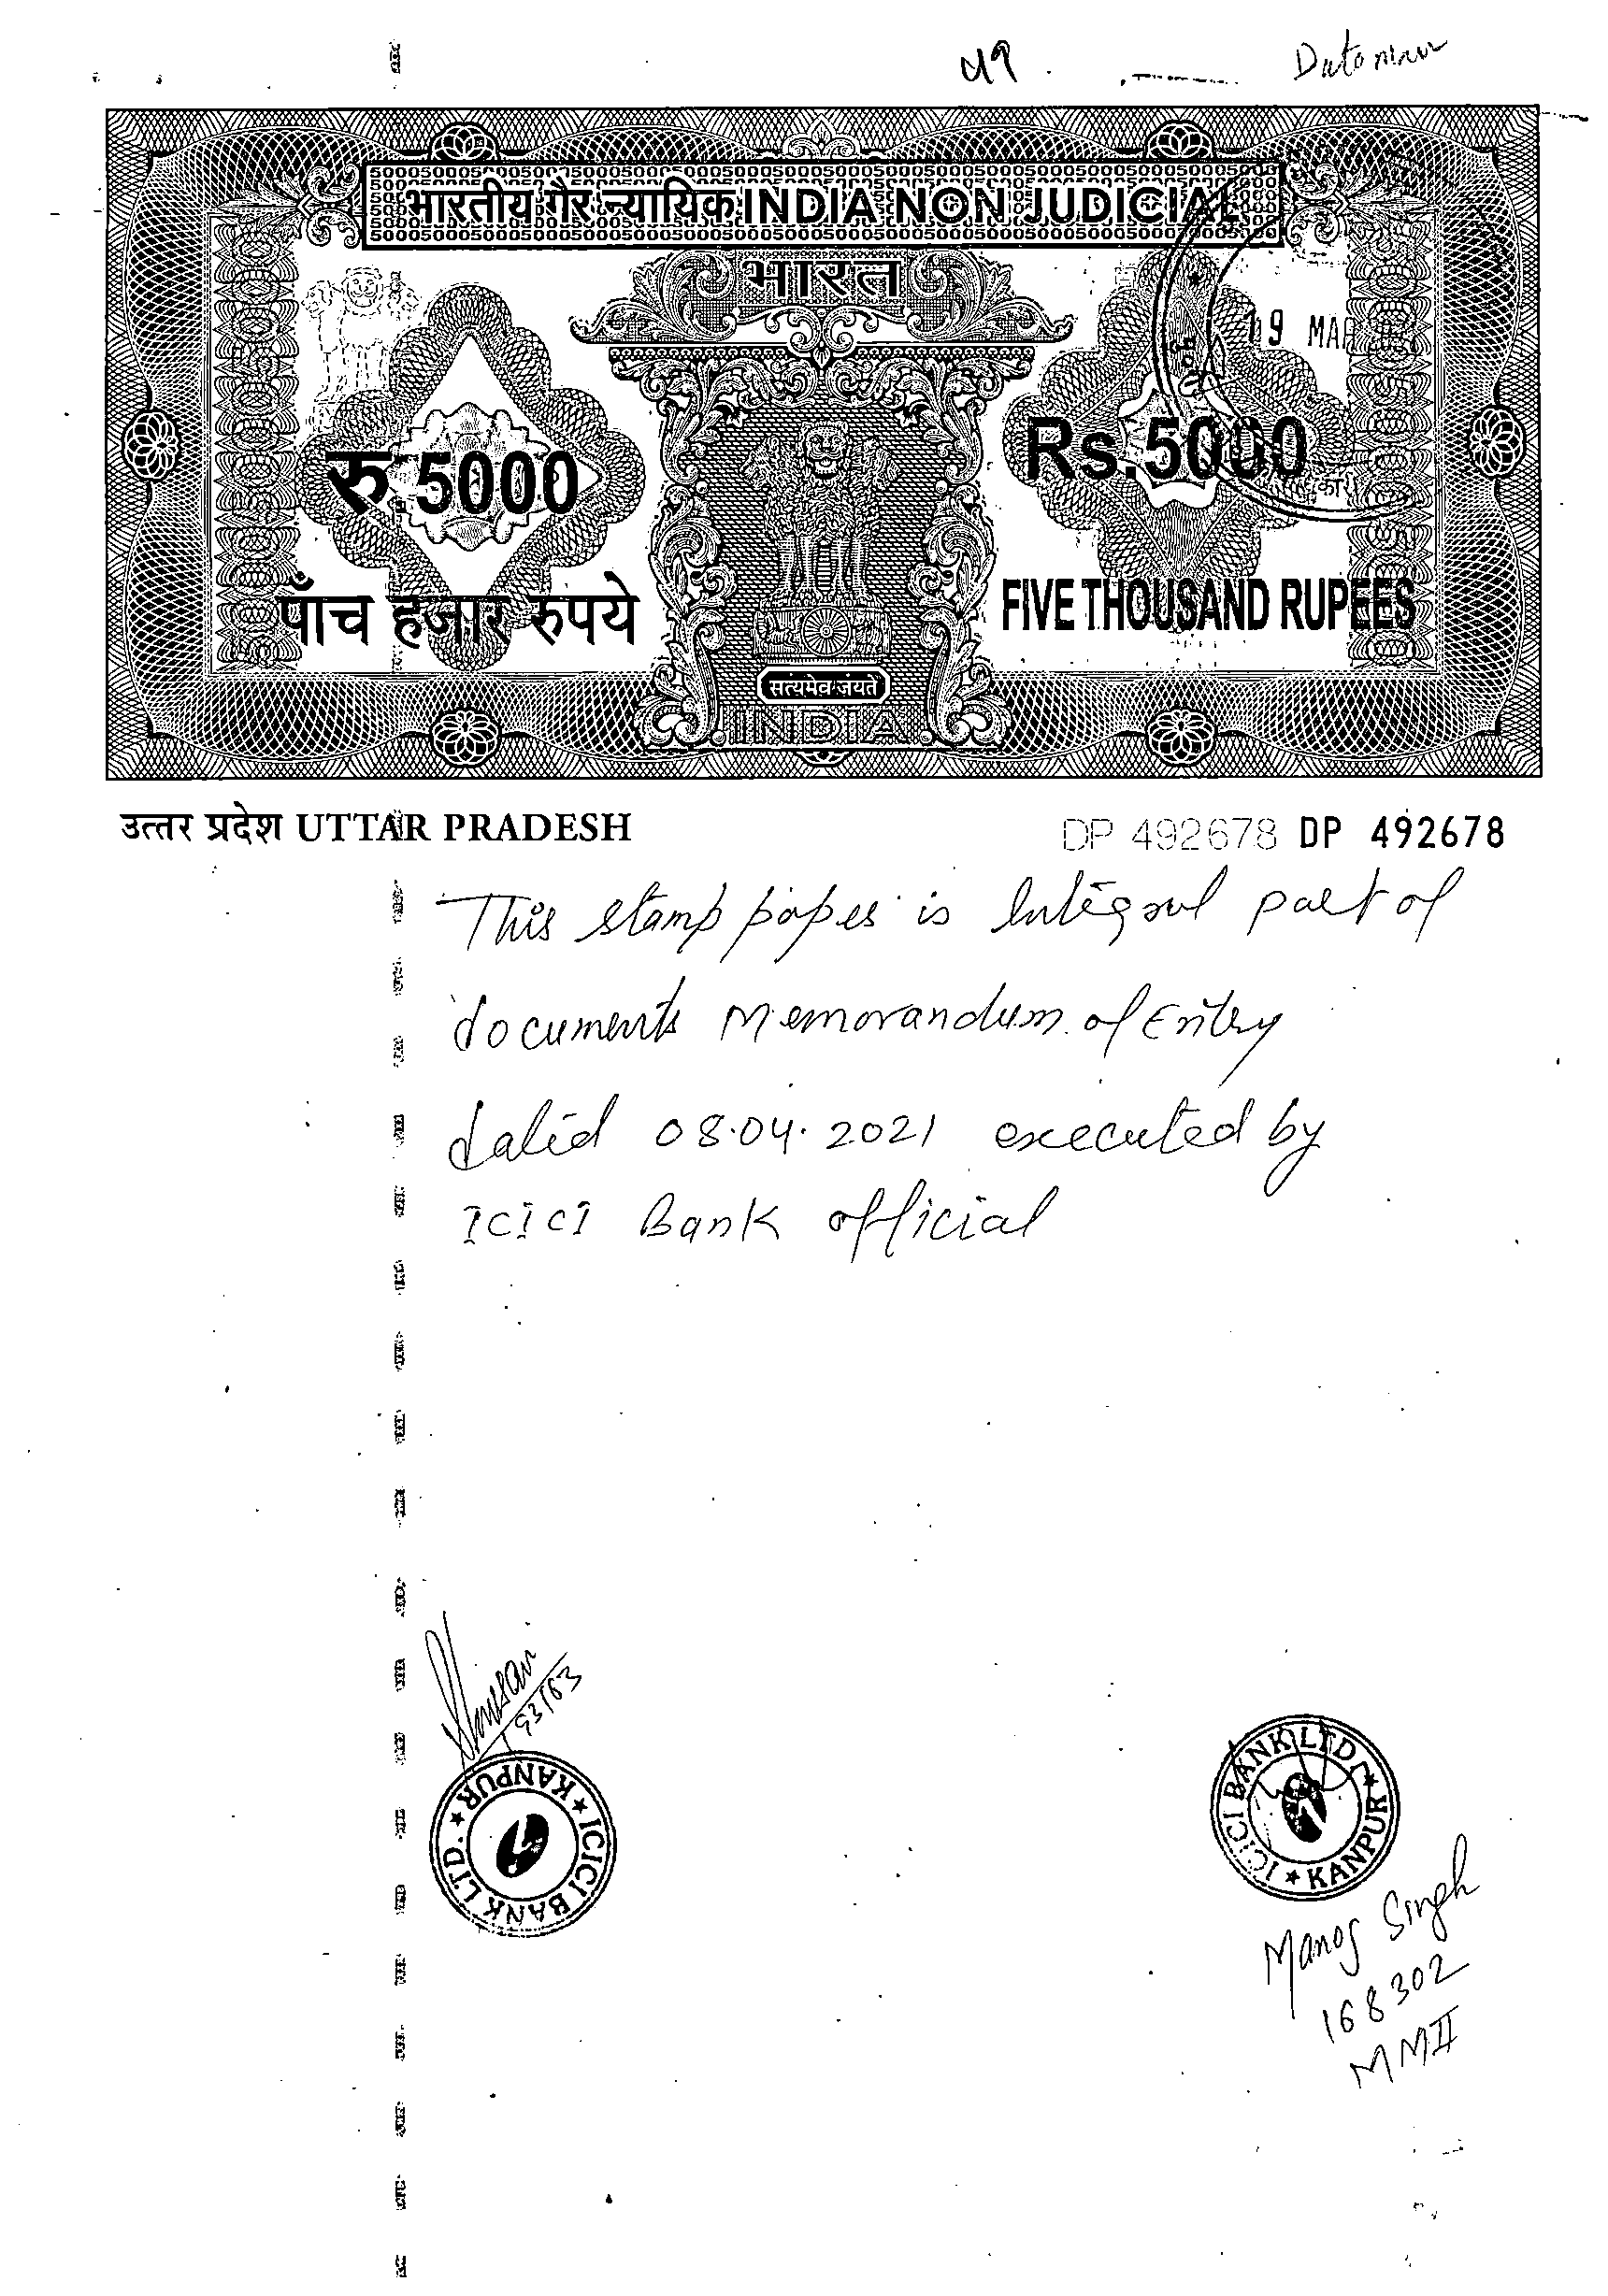 49
भारतीय गैर न्यायिक INDIA NON JUDICIAL
भारत
19 MAR
रु.5000
Rs.5000
पाँच हजार रुपये
FIVE THOUSAND RUPEES
सत्यमेव जयते
INDIA
उत्तर प्रदेश UTTAR PRADESH
DP 492678 DP 492678
This stamp paper is Integral part of
documents Memorandum of Entry
dated 08.04.2021 executed by
ICICI Bank official
93163
ICICI BANK LTD. ★ KANPUR ★
ICICI BANK LTD. ★ KANPUR ★
Manoj Singh
168302
MMII